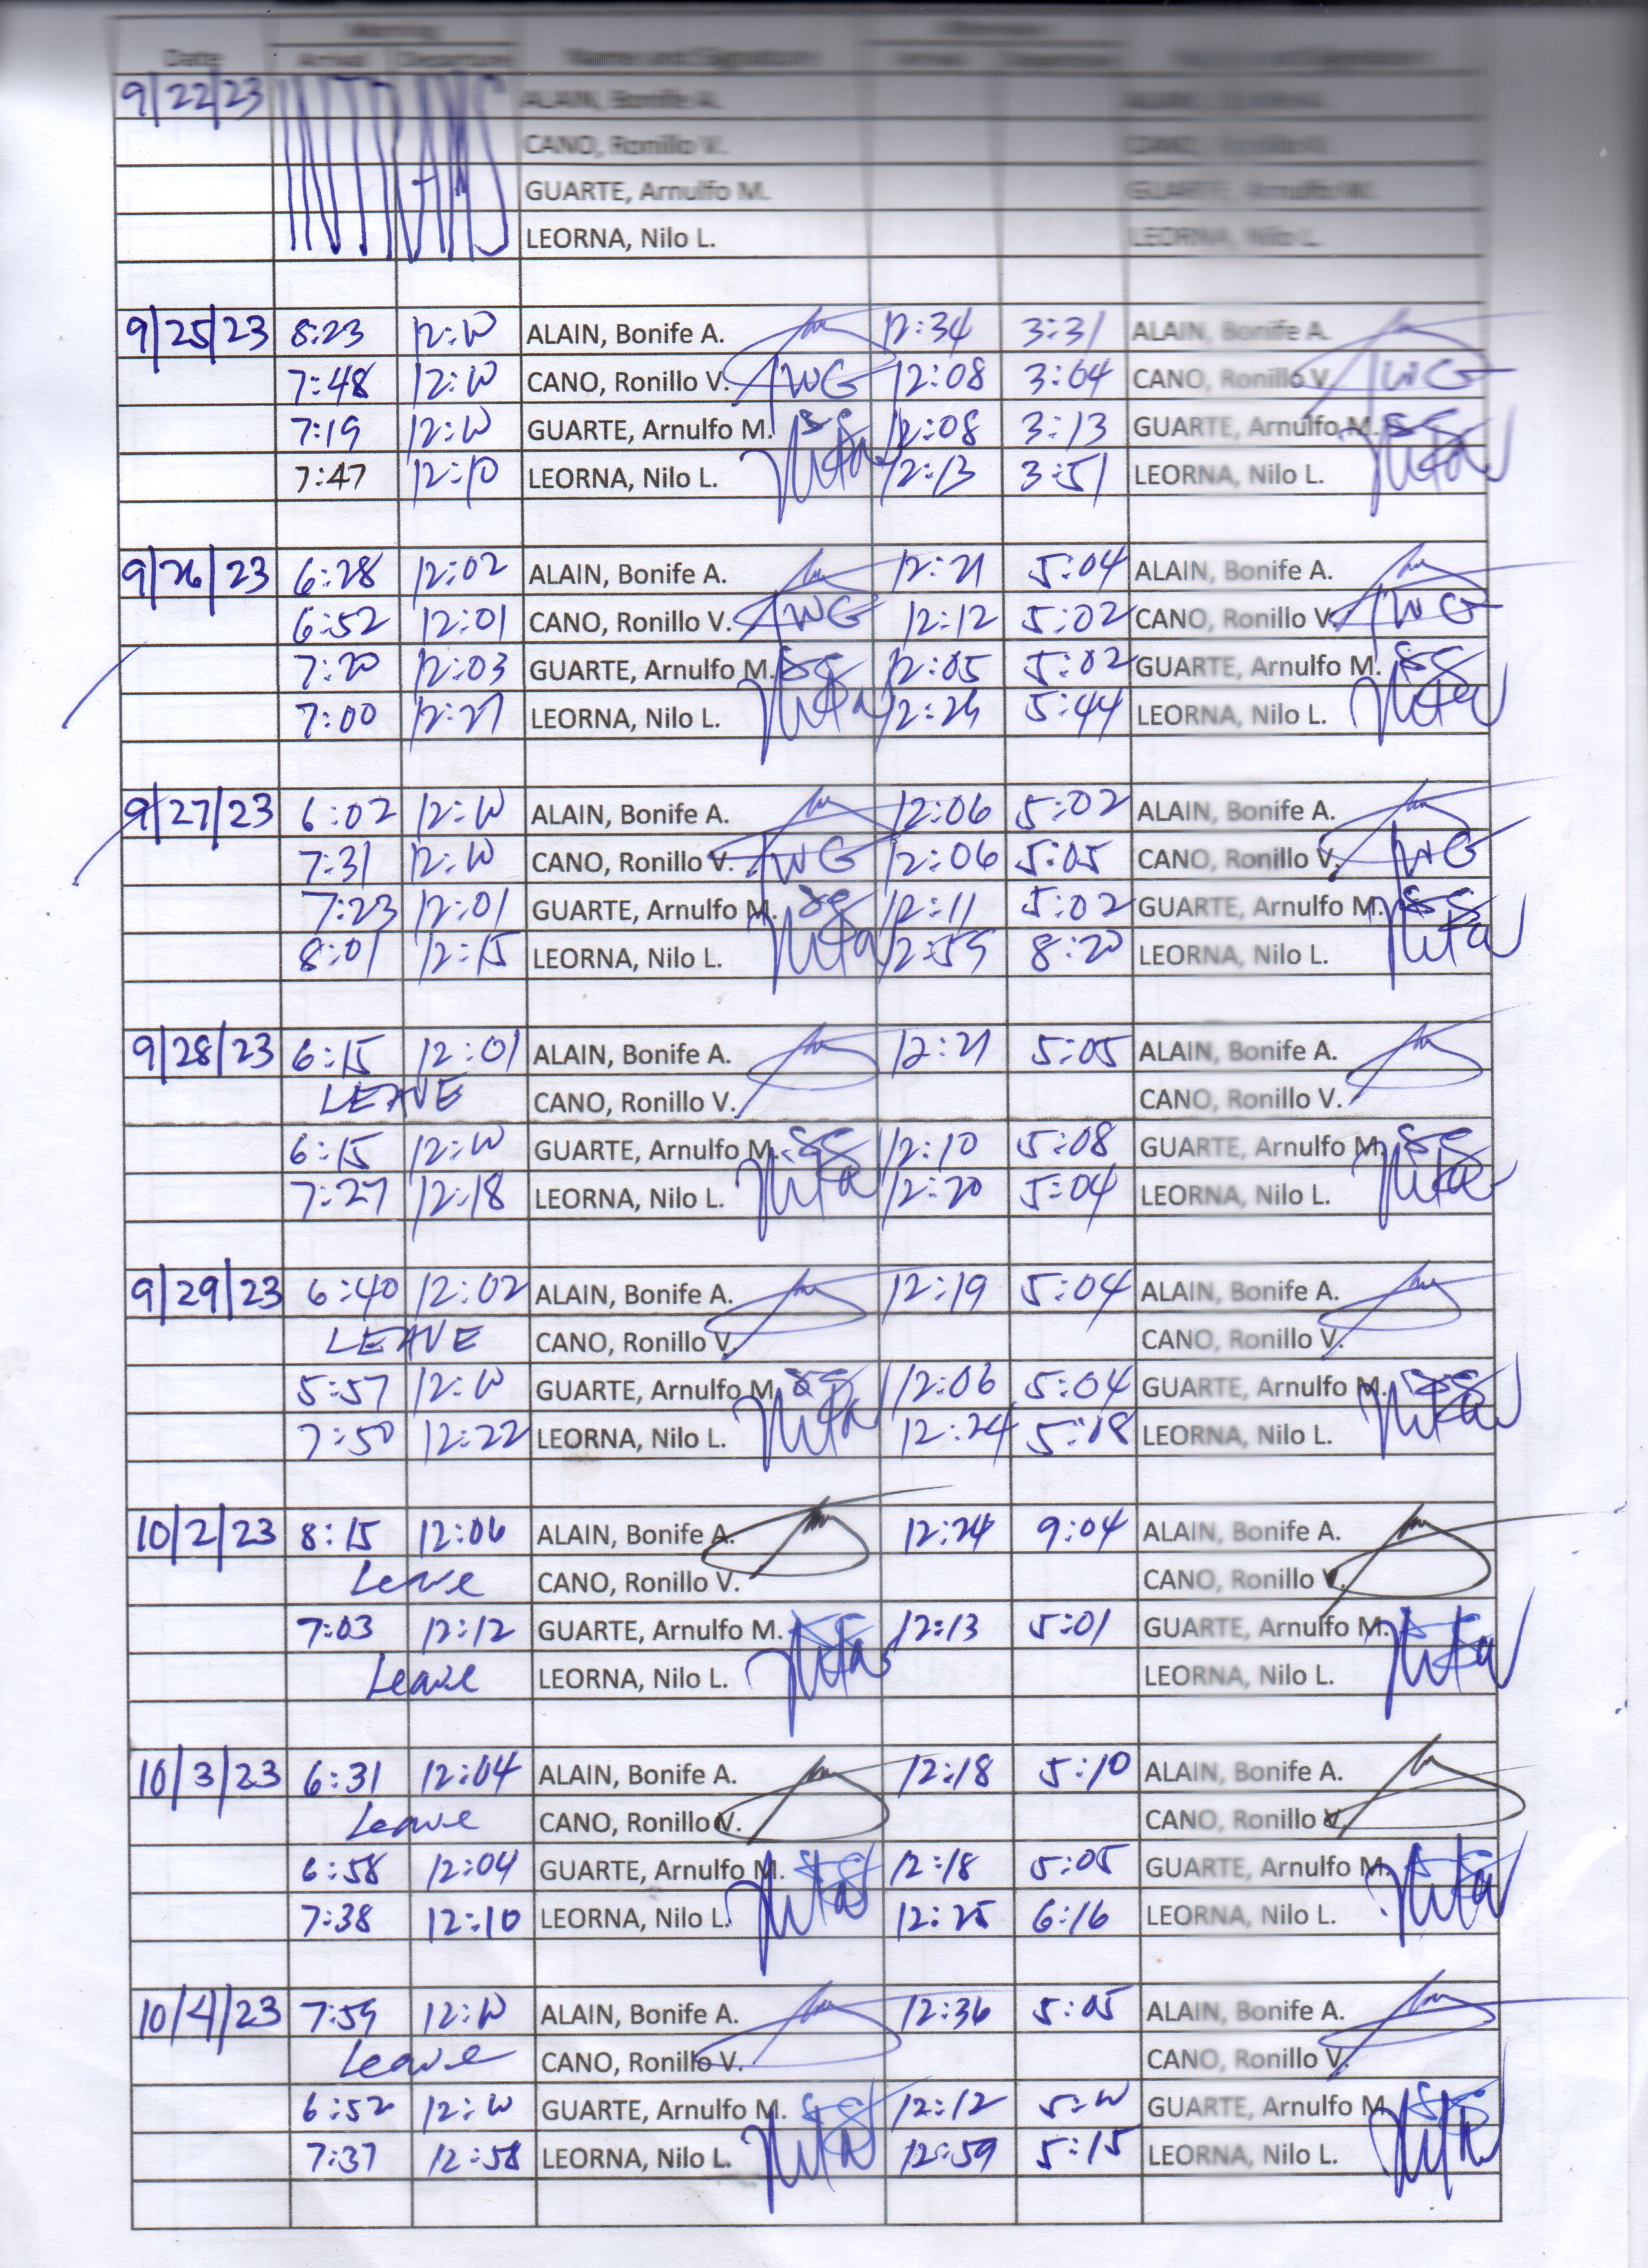 Date Morning Afternoon
Arrival Departure Name and Signature Arrival Departure Name and Signature
9/22/23 INTRAMS ALAIN, Bonife A. ALAIN, Bonife A.
CANO, Ronillo V. CANO, Ronillo V.
GUARTE, Arnulfo M. GUARTE, Arnulfo M.
LEORNA, Nilo L. LEORNA, Nilo L.
9/25/23 8:23 12:W ALAIN, Bonife A. 12:34 3:31 ALAIN, Bonife A.
7:48 12:W CANO, Ronillo V. 12:08 3:04 CANO, Ronillo V.
7:19 12:W GUARTE, Arnulfo M. 12:08 3:13 GUARTE, Arnulfo M.
7:47 12:10 LEORNA, Nilo L. 12:13 3:51 LEORNA, Nilo L.
9/26/23 6:28 12:02 ALAIN, Bonife A. 12:21 5:04 ALAIN, Bonife A.
6:52 12:01 CANO, Ronillo V. 12:12 5:02 CANO, Ronillo V.
7:20 12:03 GUARTE, Arnulfo M. 12:05 5:02 GUARTE, Arnulfo M.
7:00 12:21 LEORNA, Nilo L. 5:44 LEORNA, Nilo L.
9/27/23 6:02 12:W ALAIN, Bonife A. 12:06 5:02 ALAIN, Bonife A.
7:31 12:W CANO, Ronillo V. 12:06 5:05 CANO, Ronillo V.
7:23 12:01 GUARTE, Arnulfo M. 12:11 5:02 GUARTE, Arnulfo M.
8:01 12:15 LEORNA, Nilo L. 12:59 8:20 LEORNA, Nilo L.
9/28/23 6:15 12:01 ALAIN, Bonife A. 12:21 5:05 ALAIN, Bonife A.
LEAVE CANO, Ronillo V. CANO, Ronillo V.
6:15 12:W GUARTE, Arnulfo M. 12:10 5:08 GUARTE, Arnulfo M.
7:27 12:18 LEORNA, Nilo L. 12:20 5:04 LEORNA, Nilo L.
9/29/23 6:40 12:02 ALAIN, Bonife A. 12:19 5:04 ALAIN, Bonife A.
LEAVE CANO, Ronillo V. CANO, Ronillo V.
5:57 12:W GUARTE, Arnulfo M. 12:06 5:04 GUARTE, Arnulfo M.
7:50 12:22 LEORNA, Nilo L. 12:24 5:18 LEORNA, Nilo L.
10/2/23 8:15 12:06 ALAIN, Bonife A. 12:24 9:04 ALAIN, Bonife A.
Leave CANO, Ronillo V. CANO, Ronillo V.
7:03 12:12 GUARTE, Arnulfo M. 12:13 5:01 GUARTE, Arnulfo M.
Leave LEORNA, Nilo L. LEORNA, Nilo L.
10/3/23 6:31 12:04 ALAIN, Bonife A. 12:18 5:10 ALAIN, Bonife A.
Leave CANO, Ronillo V. CANO, Ronillo V.
6:58 12:04 GUARTE, Arnulfo M. 12:18 5:05 GUARTE, Arnulfo M.
7:38 12:10 LEORNA, Nilo L. 12:25 6:16 LEORNA, Nilo L.
10/4/23 7:59 12:W ALAIN, Bonife A. 12:36 5:05 ALAIN, Bonife A.
Leave CANO, Ronillo V. CANO, Ronillo V.
6:52 12:W GUARTE, Arnulfo M. 12:12 5:W GUARTE, Arnulfo M.
7:37 12:58 LEORNA, Nilo L. 12:59 5:15 LEORNA, Nilo L.